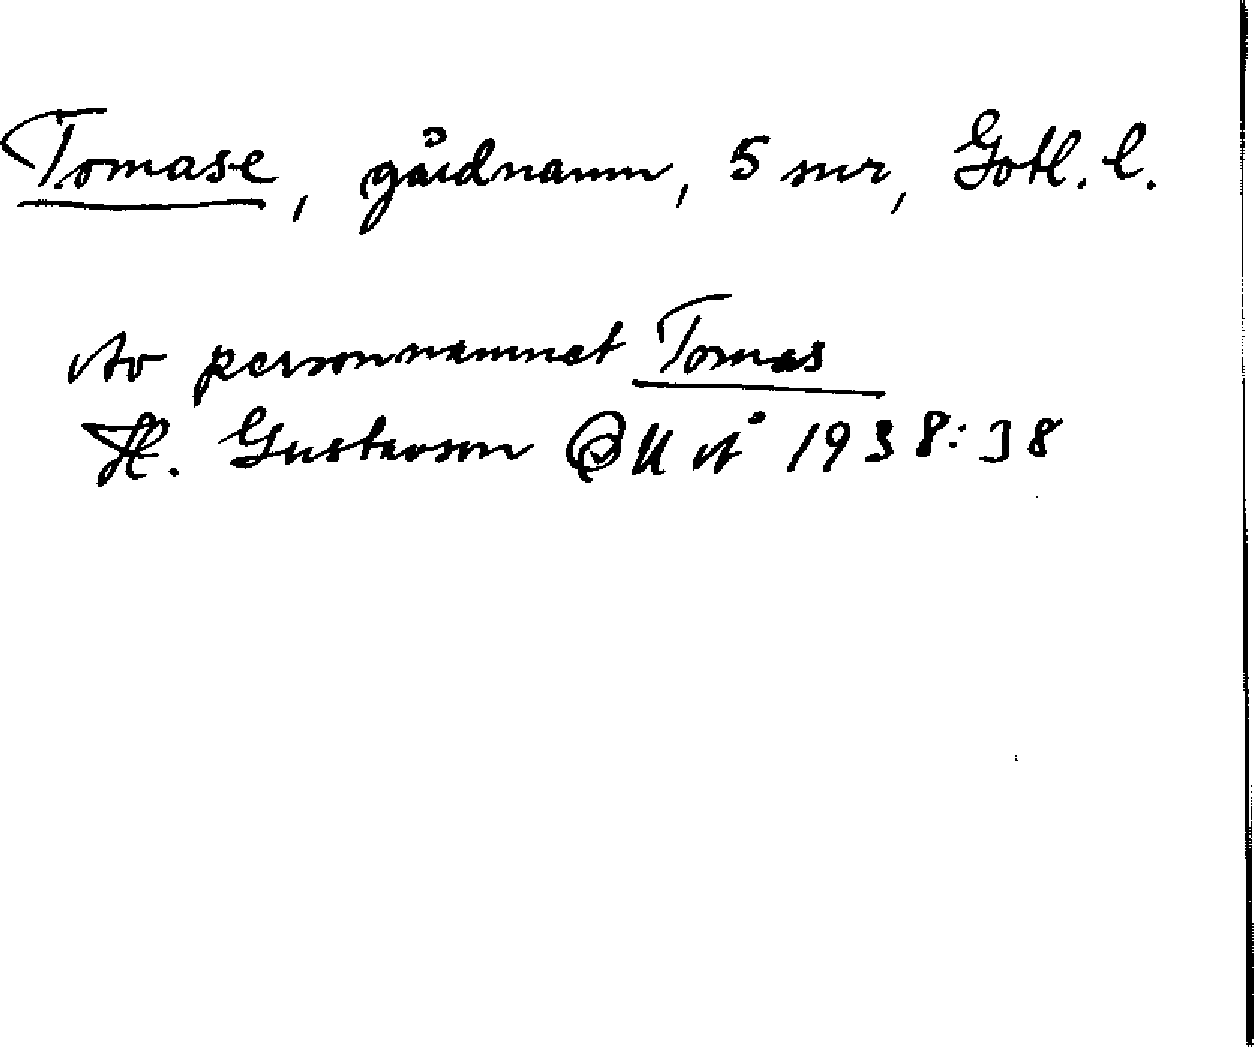 Tomase, gårdnamn, 5 snr, Gotl. l.
Av personnamnet Tomas
H. Gustavson GUÅ 1938:38